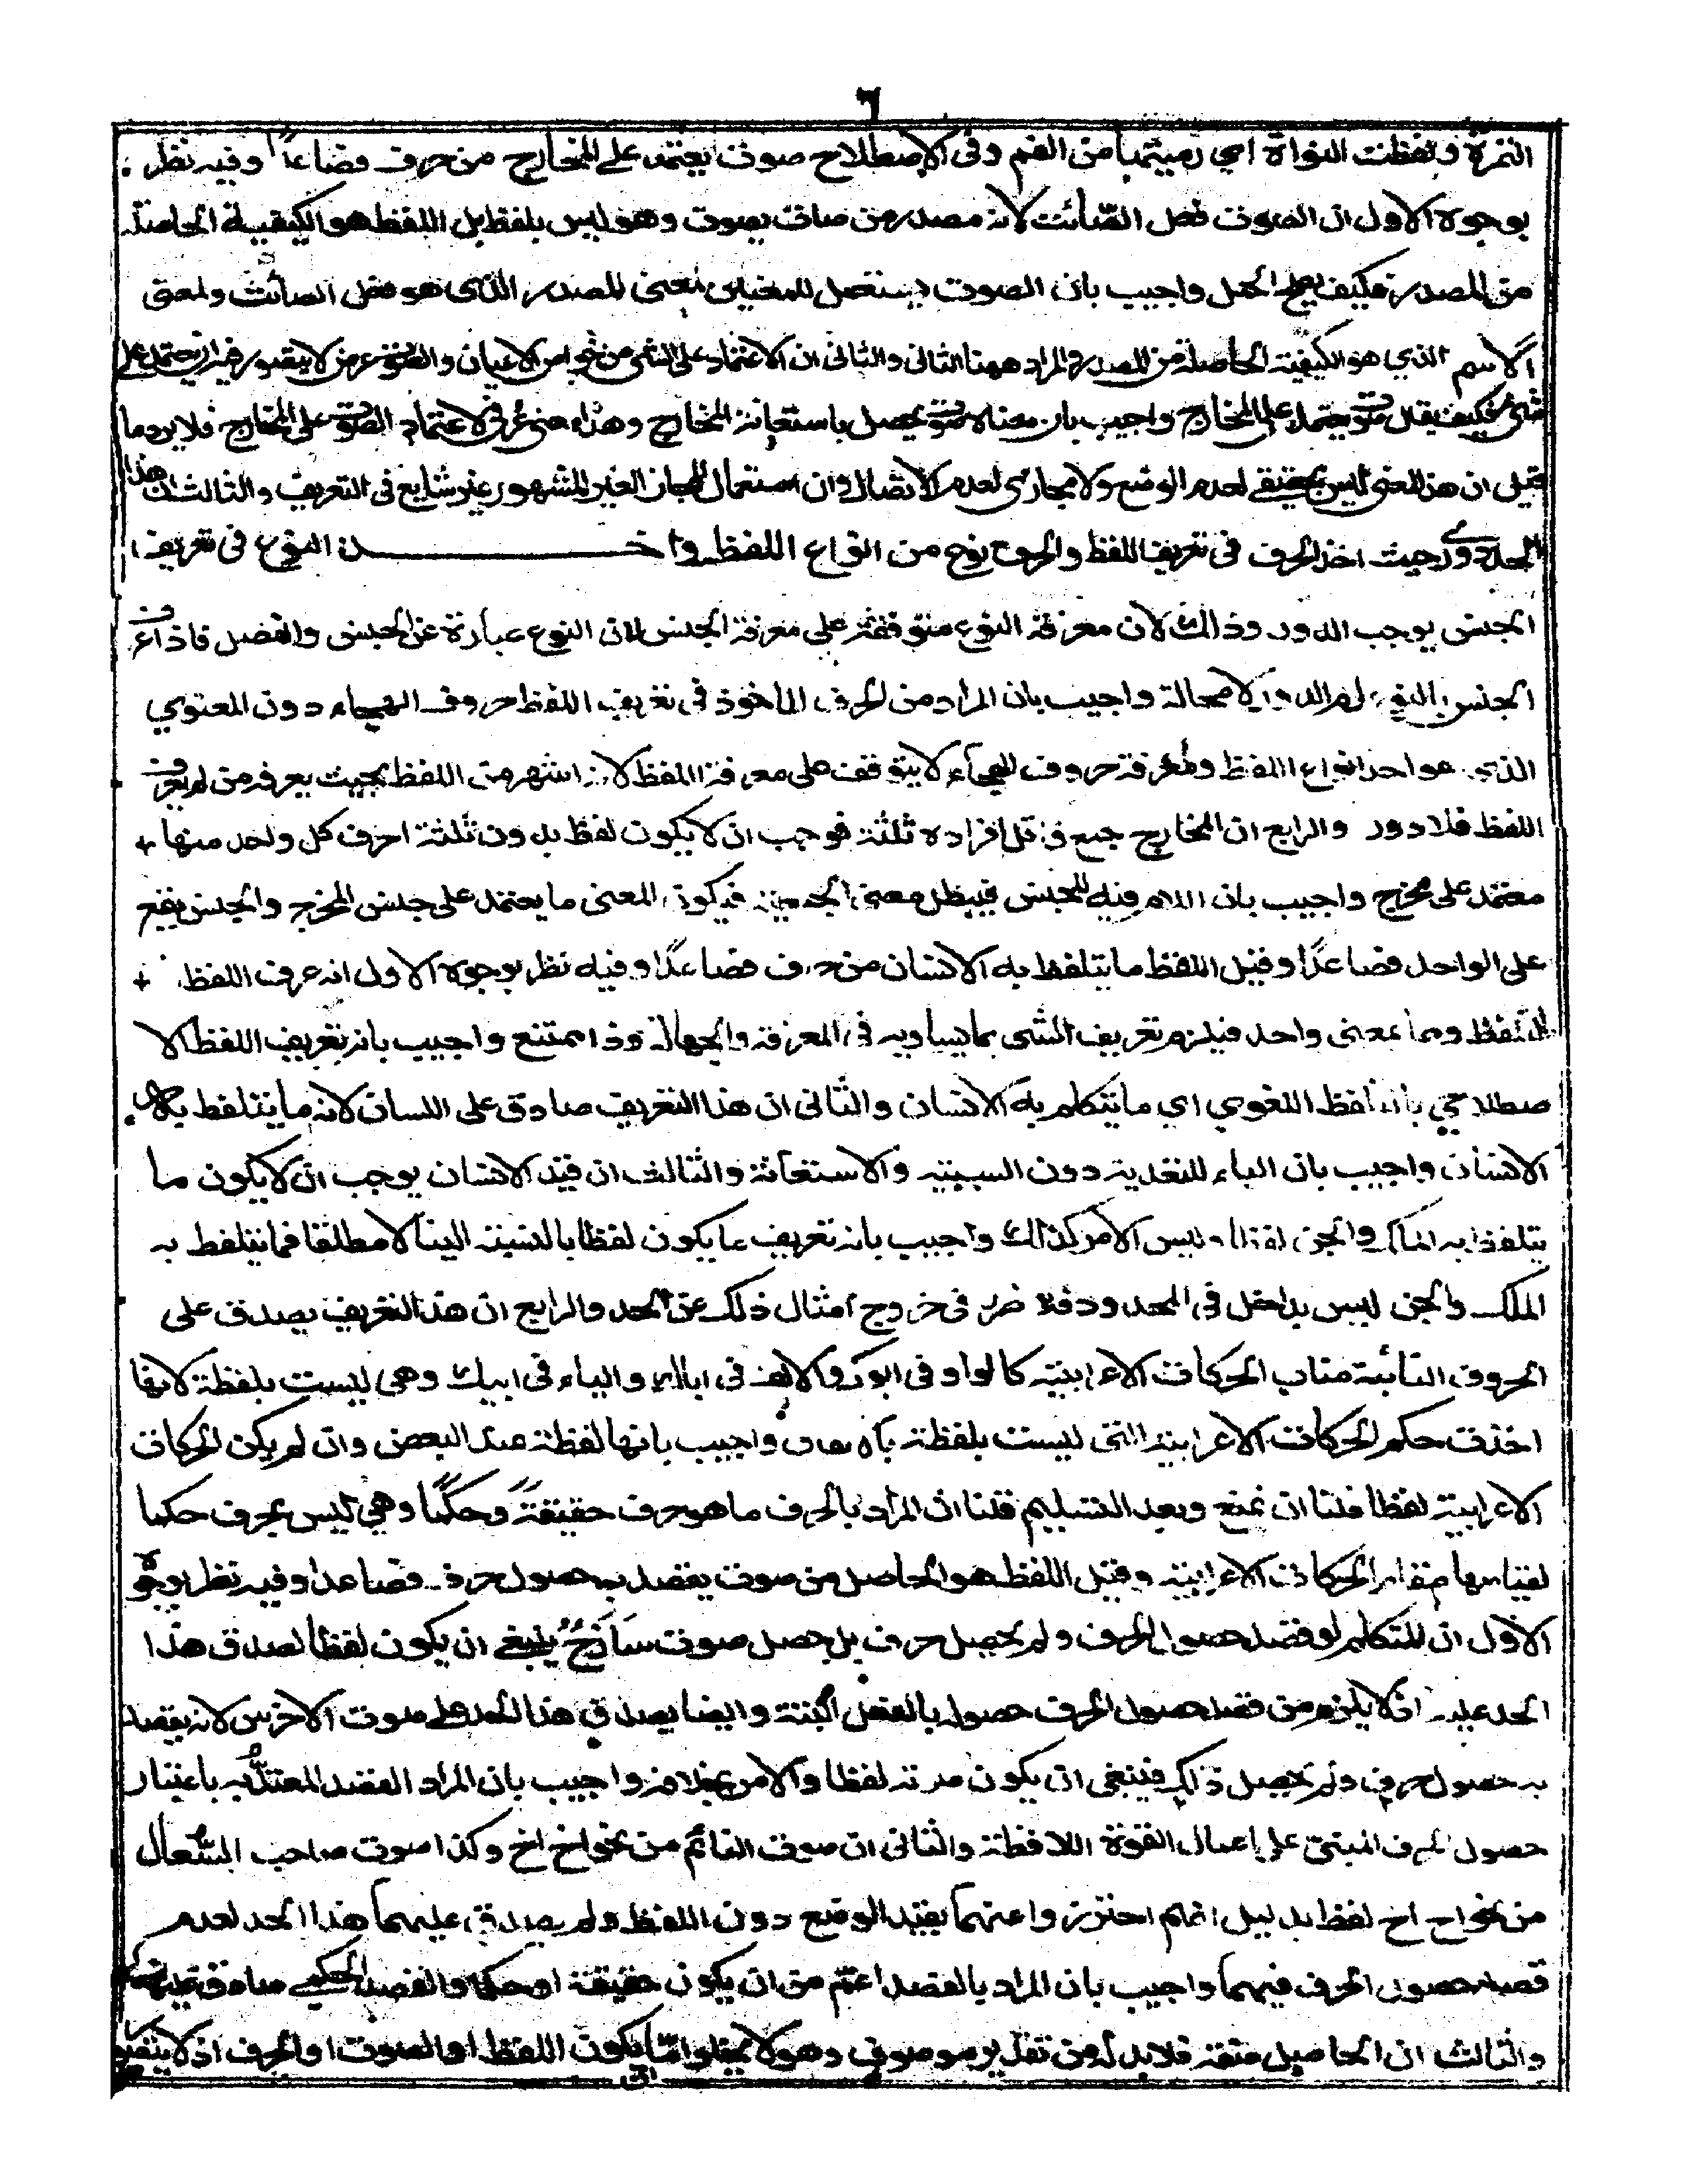 ٦
التمرة ولفظت النواة اى رميتها من الفم وفى الاصطلاح صوت يعتمد على المخارج من حرف فصاعدًا وفيه نظر
بوجوه الاول ان الصوت فعل الصائت لانه مصدر من صات يصوت وهو ليس بلفظ بل اللفظ هو الكيفية الحاصلة
من المصدر فكيف يصح الحمل واجيب بان الصوت يستعمل للمعنيين لمعنى المصدر الذى هو فعل الصائت ولمعنى
الاسم الذي هو الكيفية الحاصلة من المصدر والمراد ههنا الثانى والثانى ان الاعتماد على الشى من خواص الاعيان والصوت عرض لا يتصور فيه ان يعتمد على
شئ فكيف يقال صوت يعتمد على المخارج واجيب بان معناه صوت يحصل باستعانة المخارج وهذا معنى عرفى لاعتماد الصوت على المخارج فلا يرد ما
قيل ان هذا المعنى ليس بحقيقى لعدم الوضع ولا مجازى لعدم الاتصال وان استعمال المجاز الغير المشهور غير شايع فى التعريف والثالث ان هذا
الحد دورى حيث اخذ الحرف فى تعريف اللفظ والحرف نوع من انواع اللفظ واخـــذ النوع فى تعريف
الجنس يوجب الدور وذالك لان معرفة النوع متوقفة على معرفة الجنس لان النوع عبارة عن الجنس والفصل فاذا عرف
الجنس بالنوع لزم الدور لا محالة واجيب بان المراد من الحرف الماخوذ فى تعريف اللفظ حروف الهجاء دون المعنوي
الذى هو احد انواع اللفظ ومعرفة حروف الهجاء لا يتوقف على معرفة اللفظ لانه اشهر من اللفظ بحيث يعرفه من لم يعرف
اللفظ فلا دور والرابع ان المخارج جمع فاقل افراده ثلثة فوجب ان لا يكون لفظ بدون ثلثة احرف كل واحد منها
معتمد على مخرج واجيب بان اللام فيه للجنس فيبطل معنى الجمعية فيكون المعنى ما يعتمد على جنس المخرج والجنس يقع
على الواحد فصاعدًا وقيل اللفظ ما يتلفظ به الانسان من حرف فصاعدًا وفيه نظر بوجوه الاول انه عرف اللفظ
بالتلفظ وهما بمعنى واحد فيلزم تعريف الشى بما يساويه فى المعرفة والجهالة وذا ممتنع واجيب بانه تعريف اللفظ الا
صطلاحي باللفظ اللغوي اي ما يتكلم به الانسان والثانى ان هذا التعريف صادق على اللسان لانه ما يتلفظ به
الانسان واجيب بان الباء للتعدية دون السببية والاستعانة والثالث ان قيد الانسان يوجب ان لا يكون ما
يتلفظ به الملك والجن لفظا وليس الامر كذالك واجيب بانه تعريف ما يكون لفظا بالنسبة الينا لا مطلقا فما يتلفظ به
الملك والجن ليس بداخل فى المحدود فلا ضرر فى خروج امثال ذلك عن الحد والرابع ان هذا التعريف يصدق على
الحروف النائبة مناب الحركات الاعرابية كالواو فى ابوك والالف فى اباك والياء فى ابيك وهى ليست بلفظة لانها
اخذت حكم الحركات الاعرابية التى ليست بلفظة واجيب بانها لفظة عند البعض وان لم يكن الحركات
الاعرابية لفظا فلنا ان نمنع وبعد التسليم قلنا ان المراد بالحرف ما هو حرف حقيقةً وحكمًا وهى ليس بحرف حكما
لقيامها مقام الحركات الاعرابية وقيل اللفظ هو الحاصل من صوت يقصد به حصول حرف فصاعدا وفيه نظر بوجوه
الاول ان المتكلم لو قصد حصول الحرف ولم يحصل حرف بل حصل صوت ساذج ينبغى ان يكون لفظا لصدق هذا
الحد عليه اذ لا يلزم من قصد حصول الحرف حصوله بالفعل البتة وايضا يصدق هذا الحد على صوت الاخرس لانه يقصد
به حصول حرف ولم يحصل ذلك فينبغى ان يكون صوته لفظا والامر بخلافه واجيب بان المراد القصد المعتد به باعتبار
حصول الحرف المبتنى على اعمال القوة اللافظة والثانى ان صوت النائم من نحو اخ اخ وكذا صوت صاحب السعال
من نحو اح اح لفظ بدليل انهم احترزوا عنهما بقيد الوضع دون اللفظ ولم يصدق عليهما هذا الحد لعدم
قصد حصول الحرف فيهما واجيب بان المراد بالقصد اعم من ان يكون حقيقة او حكما والقصد الحكمى صادق
والثالث ان الحاصل صفة فلا بد له من تقدير موصوف وهو لا يخلو اما ان يكون اللفظ او الصوت او الحرف اذ لا يتصور